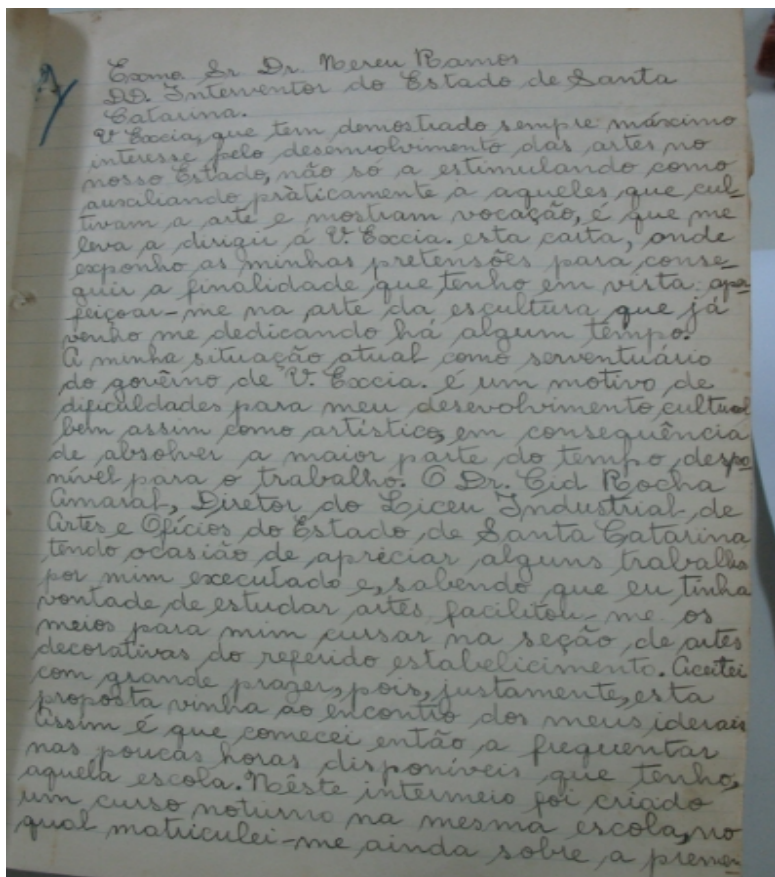 Exmo Sr Dr. Nereu Ramos
DD. Interventor do Estado de Santa
Catarina.
V. Excia, que tem demostrado sempre máximo
interesse pelo desenvolvimento das artes no
nosso Estado, não só a estimulando como
auxiliando pràticamente à aqueles que cul-
tivam a arte e mostram vocação, é que me
leva a dirigir á V. Excia. esta carta, onde
exponho as minhas pretensões para conse-
guir a finalidade que tenho em vista: aper
feiçoar-me na arte da escultura que já
venho me dedicando há algum tempo.
A minha situação atual como serventuário
do govêrno de V. Excia. é um motivo de
dificuldades para meu desevolvimento cultural
bem assim como artístico, em consequência
de absolver a maior parte do tempo despo
nível para o trabalho. O Dr. Cid Rocha
Amaral, Diretor do Liceu Industrial de
Artes e Ofícios do Estado de Santa Catarina
tendo ocasião de apreciar alguns trabalhos
por mim executado e, sabendo que eu tinha
vontade de estudar artes facilitou-me os
meios para mim cursar na seção de artes
decorativas do referido estabelicimento. Aceitei
com grande prazer, pois, justamente, esta
proposta vinha ao encontro dos meus iderais
Assim é que comecei então a frequentar
nas poucas horas disponíveis que tenho,
aquela escola. Nêste intermeio foi criado
um curso noturno na mesma escola, no
qual matriculei-me ainda sobre a premen